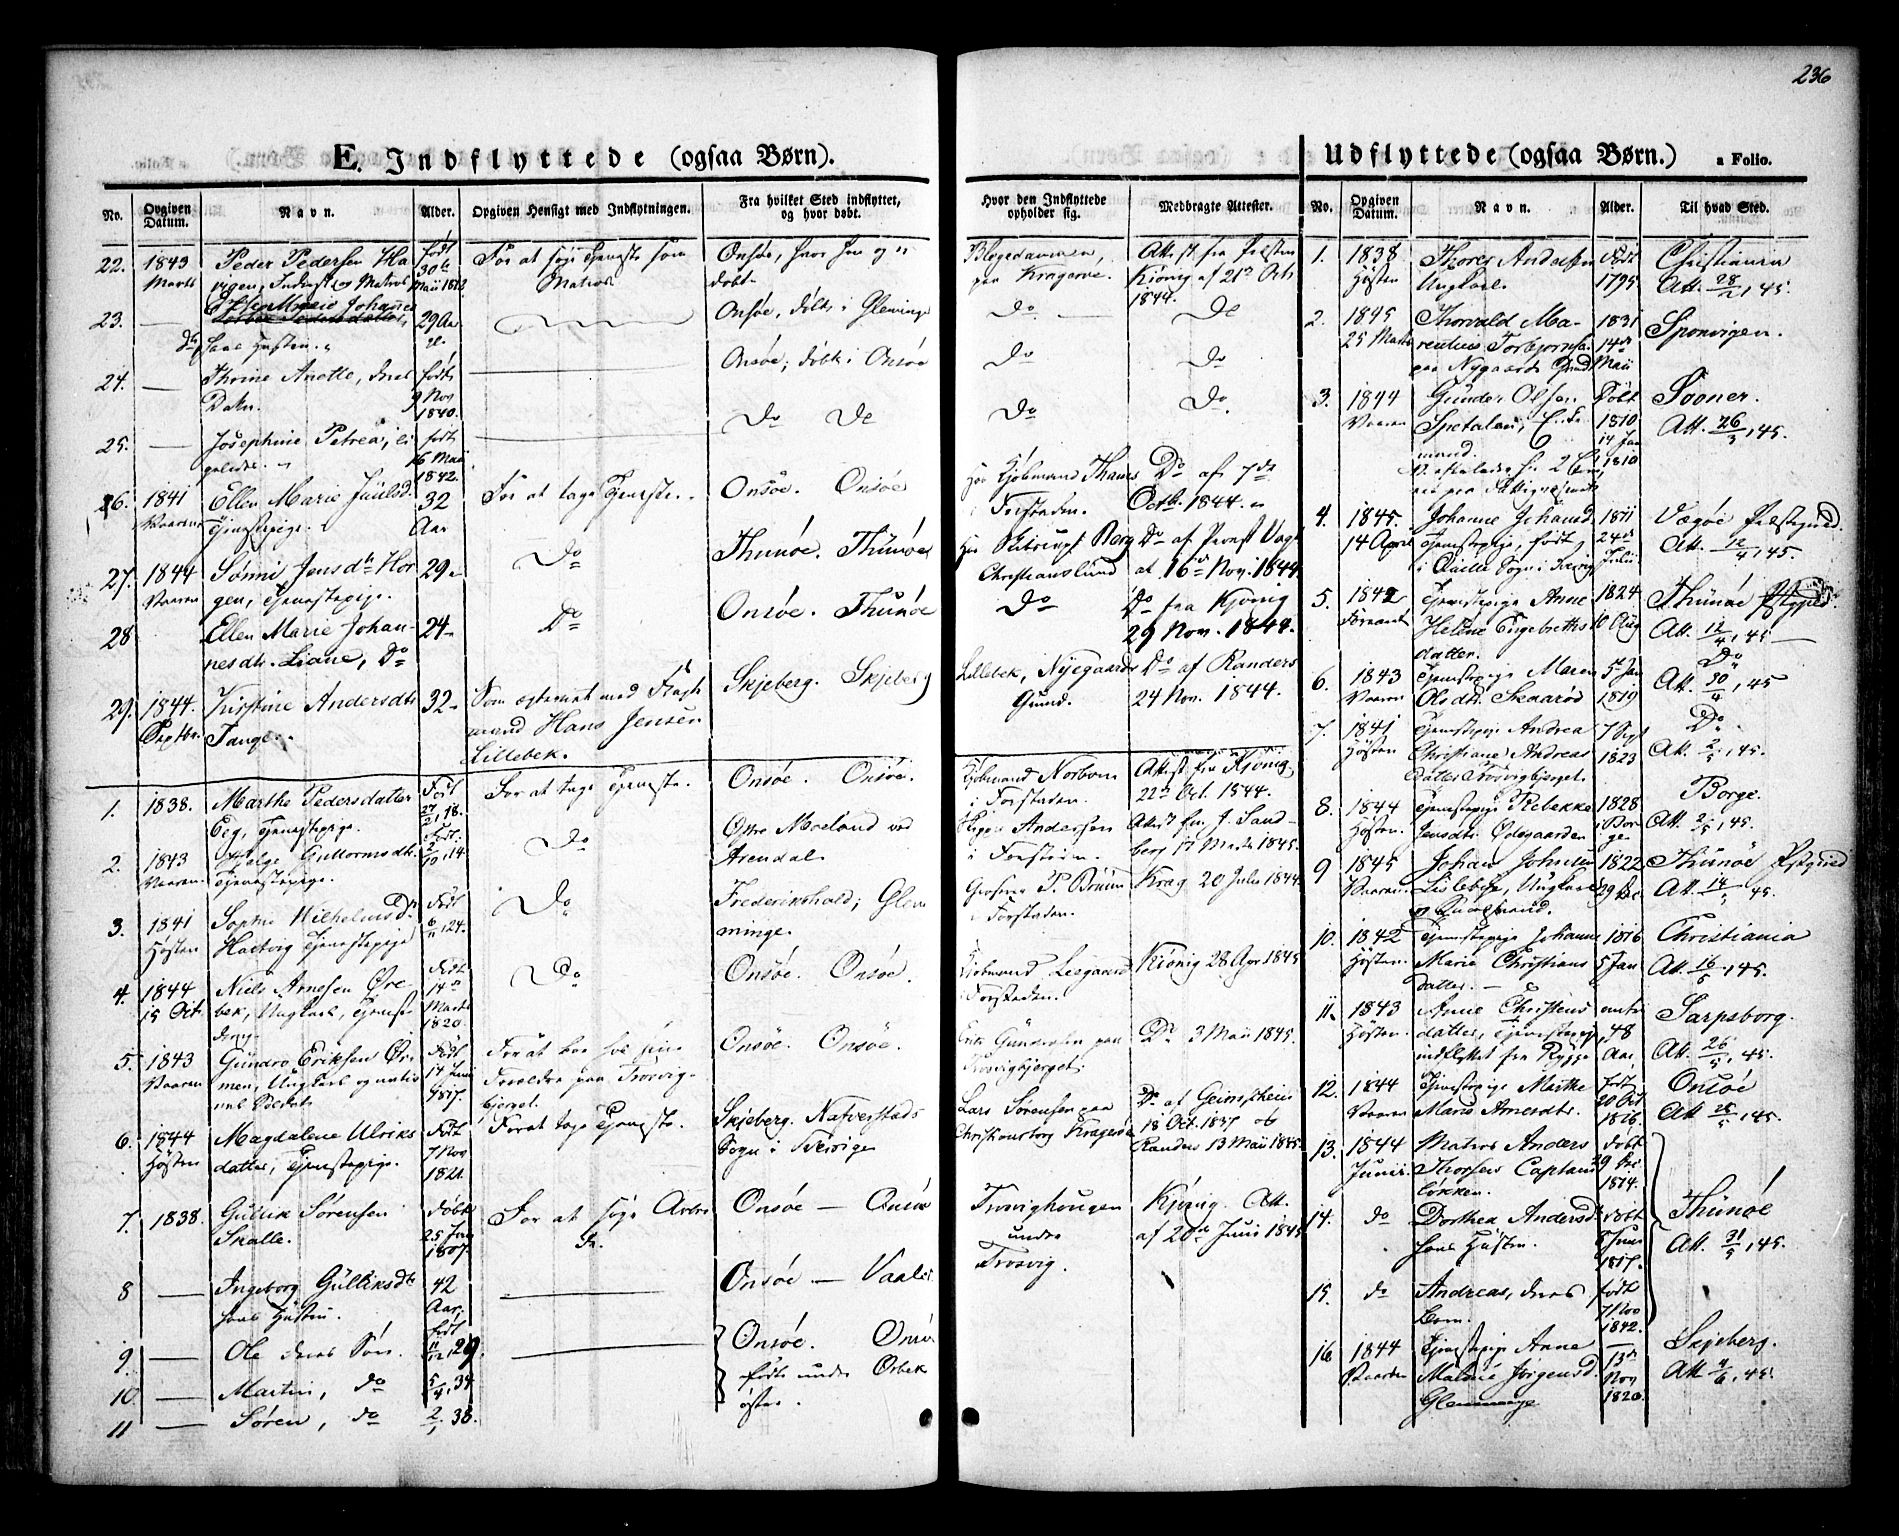 236
E. Indflyttede (ogsaa Børn).
No. Opgiven Datum. Navn. Alder. Opgiven Hensigt med Indflytningen. Fra hvilket Sted indflyttet, og hvor døbt.
22. 1843 Peder Pedersen født For at søge Tjeneste som Onsøe, hvor han og er
Marts Matros døbt.
23. — Marie Johanne 29 Aar Onsøe, døbt i Glemminge
do hans Hustru.
24. — Thrine Anette, deres født Onsøe, døbt i Onsøe
9 Nov 1840.
25. — Josephine Petrea, født Do Do
16 Maii 1842.
26. 1841 Ellen Marie Juulsd. 32 For at tage Tjeneste. Onsøe. Onsøe
Vaaren Tjenestepige. Aar
27. 1844 Jensdtr. Hor 29 Do Thunøe. Thunøe
Vaaren gen, Tjenestepige.
28 Ellen Marie Johan 24 Do Onsøe. Thunøe
nesdtr. Liane, Do
29. 1844. Kirstine Andersdtr 32 Som med Skjeberg. Skjeberg
Septbr. Tange. Hans Jensen
Lillebek.
1. 1838. Marthe Pedersdatter Født For at tage Tjeneste. Onsøe. Onsøe.
Eeg, Tjenestepige. 27/2, 18.
2. 1843 Helge Guttormsdtr. Født Do Østre Moeland ved
Vaaren Tjenestepige. 14. Arendal
3. 1841 Sophie Wilhelmsd Født Do Frederikshald; Glem
Høsten Hartvig Tjenestepige 6/11, 24. minge.
4. 1844 Niels Arnesen Øre Født Do Onsøe. Onsøe.
15 Oct. bek, Ungkarl, Tjeneste 14de Marts
dreng. 1820.
5. 1843 Gundro Eriksen Født For at boe hos sine Onsøe. Onsøe.
Vaaren men, Ungkarl og natio 14 Juni Forældre paa Trosvig
nal Soldat 1817. bjerget.
6. 1844 Magdalene Ulriks Født For at tage Tjeneste. Skjeberg. Natverstads
Høsten datter, Tjenestepige. 7 Nov Sogn i Sverige
1821.
7. 1838. Gullik Sørensen døbt For at søge Arbei Onsøe — Onsøe
Skalle. 25 Jan de.
1807.
8 — Ingeborg Gulliksdtr 42 Onsøe — Vaaler
hans Hustru. Aar.
9 — Ole deres Søn. født 11/12, 29. Onsøe. Onsøe
10 — Martin, do 5/4, 34 født under Orbek
11 — Søren, do 2/1, 38. østre.
Hvor den Indflyttede opholder sig. Medbragte Attester.
Blegedammen, Attest fra Præsten
paa Kragerøe. Kiønig af 21de Oct.
1844.
Do — Do
Do Do
Do Do
Hos Kjøbmand Thanes Do af 7de
i Forstaden. Octb. 1844.
Hos Berg Do af Provst Vogt
Christianslund at 16de Nov. 1844
Do Do fra Kjønig
29 Nov. 1844.
Lillebek, Nyegaards Do af Randers
Grund. 24 Nov. 1844.
Kjøbmand Norbom Attest fra Kjønig
i Forstaden. 22de Oct. 1844.
Skipper Andersen Attest fra J. Sand-
i Forstaden. berg 17 Marts 1845.
P. Bruun Krag 20 Julii 1844
i Forstaden.
Kjøbmand Leegaard Kiønig 28 Apr 1845
Forstaden.
Erik Gundersen paa Do 3 Maii 1845.
Trosvigbjerget.
Lars Sørensen paa Do af
Christiansborg Kragerøe 18 Oct. 1837 og
Randers 13 Maii 1845.
Trosvighougen Kjønig. Att.
under af 20de Juni 1845
Trosvig.
Udflyttede (ogsaa Børn.)
a Folio.
No. Opgiven Datum. Navn. Alder. Til hvad Sted.
1. 1838 Thorer Andersen Født Christiania
Høsten Ungkarl. 1795. Att. 28/2, 45.
2. 1845 Thorvald Ma- 1831 Sponvigen.
25 Marts rentius Torbjørns. 14de
paa Nygaards Grund Maii
3. 1844 Gunder Olsen Døbt Sooner.
Vaaren Spetalen, Enke 1810 Att. 26/3, 45.
mand. 14 Jan
1810
4. 1845. Johanne Johansd. 1811 Vægøe Præstegjeld.
14 April Tjenestepige, født 24de Att. 12/4, 45
i Sogn i Sverig Julii
5. 1842 Tjenestepige Anne 1824 Thunøe Pstgjeld.
Helene Engebreths 10 Aug Att. 12/4, 45
datter.
6. 1843 Tjenestepige Maren 5te Jan Do
Vaaren Olsdtr. Skaarød 1819 Att. 30/4, 45
7. 1841 Tjenestepige Andrea 7 Sept Do
Høsten Christiane Andreas 1823 Att. 2/5, 45.
datter Trosvigbjerget.
8. 1844 Tjenestepige Rebekke 1828 Borge.
Høsten. Jensdtr. Ødegaarden i Bor Att. 2/5, 45.
ge
9 1845 Johan Johnsen 1822 Thunøe Pstgjeld
Vaaren. Lisleby, Ungkarl 29 Att. 14/5 45.
10. 1842 Tjenestepige Johanne 1816 Christiania
Høsten. Marie Christians 5 Jan Att. 16/5, 45.
datter. —
11. 1843 Anne Christens Sarpsborg.
Høsten. datter, Tjenestepige 48 Att. 26/5, 45.
indflyttet fra Rygge Aar.
12. 1844 Tjenestepige Marthe født Onsøe
Vaaren Marie Arnesdtr. 20 Oct Att. 28/5, 45.
1826.
13. 1844 Matros Anders døbt
Junii. Thorsen Captain 29
løkken. 1814.
14. do Dorthea Andersd. døbt Thunøe
hans Hustru. Juni Att. 31/5, 45.
1817.
15. do Andreas, deres født
Barn. 7 Nov
1842.
16 1844 Tjenestepige Anne 13de Skjeberg.
Vaaren Malene Jørgensd Nov Att. 4/6, 45.
Glemminge 1820.